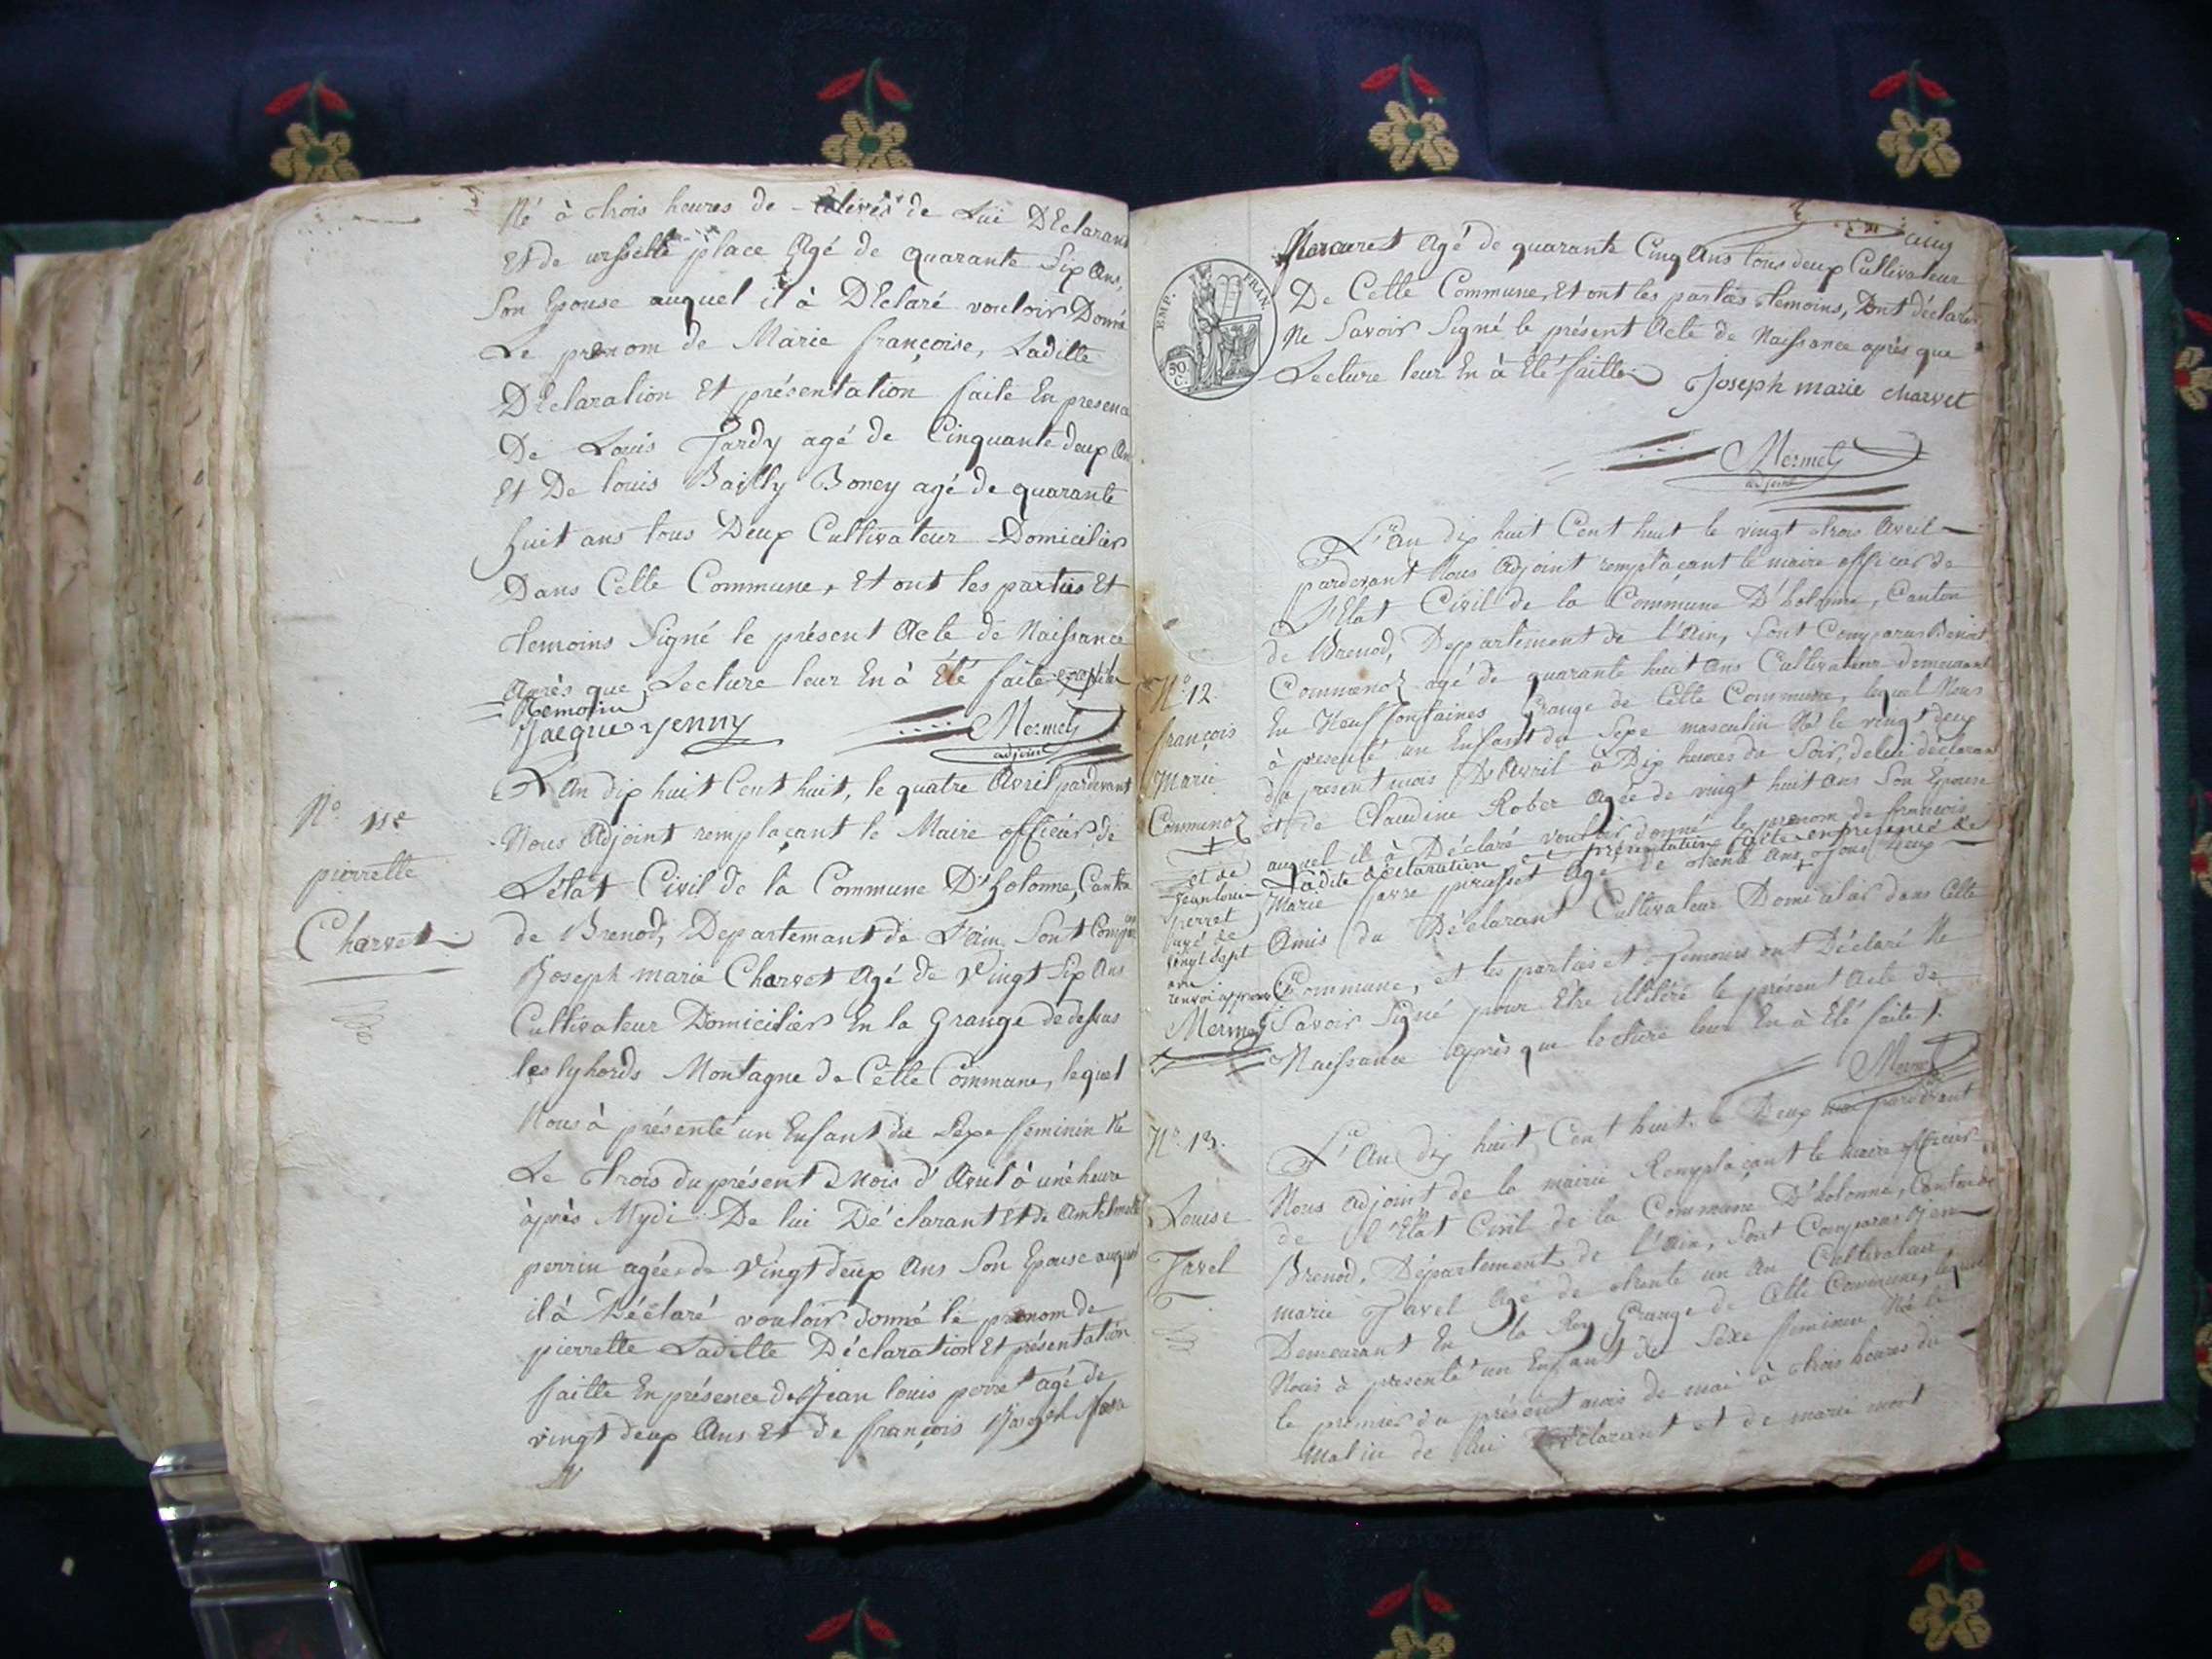 Né à trois heures de de Lui DEclarant
Et de ursselle place Agé de quarante Six Ans,
Son Epouse auquel il à DEclaré vouloir Donné
Le prenom de Marie françoise, Ladille
DEclaration Et présentation faite En presence
De Louis Tardy agé de Cinquante deux An
Et De louis Bailly Boney agé de quarante
huit ans tous Deux Cultivateur Domicilier
Dans Cette Commune, Et ont les parties Et
temoins Signé le présent Acte de Naissance
Après que Lecture leur En à Eté faite
temoin
Jacque jenny Mermet
adjoint
N° 11e
pierrette
Charvet
L'An dix huit Cent huit, le quatre Avril pardevant
Nous Adjoint remplaçant le Maire officier de
L'état Civil de la Commune D'hotonne, Canton
de Brenod, Departemant de L'Ain, Sont Compa
Joseph marie Charvet Agé de Vingt Six Ans
Cultivateur Domicilier En la Grange de dessus
les lyhords Montagne de Cette Commune, lequel
Nous à présenté un Enfant du Sexe féminin Né
Le trois du présent Mois d'Avril à une heure
après Mydi De lui Déclarant Et de
perrin agée de Vingt deux Ans Son Epouse auquel
il à Déclaré vouloir donné le prenom de
pierrette Ladille Déclaration Et présentation
faitte En présence de Jean louis perret agé de
vingt deux Ans Et de françois Joseph
EMP. FRAN.
50 C.
Agé de quarante Cinq Ans tous deux Cultivateur
De Cette Commune, Et ont les parties temoins, Dont déclaré
Ne Savoir Signé le présent Acte de Naissance après que
Lecture leur En à Eté faitte
Joseph marie charvet
Mermet
adjoint
N° 12
françois
Marie
Commenoz
L'an dix huit Cent huit le vingt trois Avril
pardevant Nous Adjoint remplaçant le maire officier de
L'Etat Civil de la Commune D'hotonne, Canton
de Brenod, Departement de l'Ain, Sont Comparus Benoit
Commenoz agé de quarante huit ans Cultivateur demeurant
En Neuf fontaines Grange de Cette Commune, lequel Nous
à presenté un Enfant du Sexe masculin Né le vingt deux
du present mois D'Avril à Dix heures du Soir, de lui déclarant
et de Claudine Rober Agée de vingt huit ans Son Epouse
auquel il à Déclaré vouloir donné le prenom de françois
Ladite déclaration et présentation faite en presence de
Marie favre Agé de trente Ans, tous deux
Amis du Déclarant Cultivateur Domicilier dans Cette
Commune, et les parties et temoins ont Déclaré Ne
Savoir Signé pour Etre illitéré le présent Acte de
Naissance après que lecture leur En à Eté faite.
Mermet
et de
jean louis
perret
agé de
vingt sept
ans
renvoi approuvé
Mermet
N° 13.
Louise
Javel
L'An dix huit Cent huit le Deux mai pardevant
Nous adjoint de la mairie Remplaçant le maire officier
de l'Etat Civil de la Commune D'hotonne, Canton de
Brenod, Département de l'Ain, Sont Comparus Jean
marie Javel Agé de trente un An Cultivateur,
Demeurant En la Rey Grange de Cette Commune, lequel
Nous à presenté un Enfant du Sexe feminin Née le
le premier du présent mois de mai à trois heures du
Matin de lui Déclarant et de marie mort